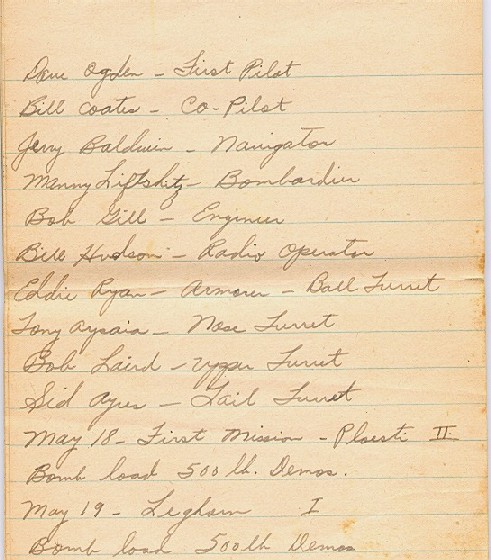 Dave Ogden - First Pilot
Bill Coates - Co-Pilot
Jerry Baldwin - Navigator
Manny Lifshitz - Bombardier
Bob Gill - Engineer
Bill Hudson - Radio Operator
Eddie Ryan - Armorer - Ball Turret
Tony - Nose Turret
Bob Laird - Upper Turret
Sid Ayres - Tail Turret
May 18 - First Mission - Ploesti II
Bomb load 500 lb. Demos.
May 19 - Leghorn I
Bomb load 500 lb Demos